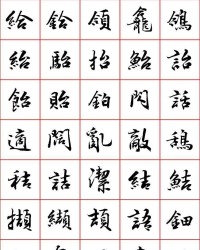 給 鈴 頜 龕 鴿
紿 駘 抬 鮐 詒
飴 貽 鉑 閃 話
適 闊 亂 敵 鴰
秸 詰 潔 結 鮚
擷 纈 頡 語 鈿